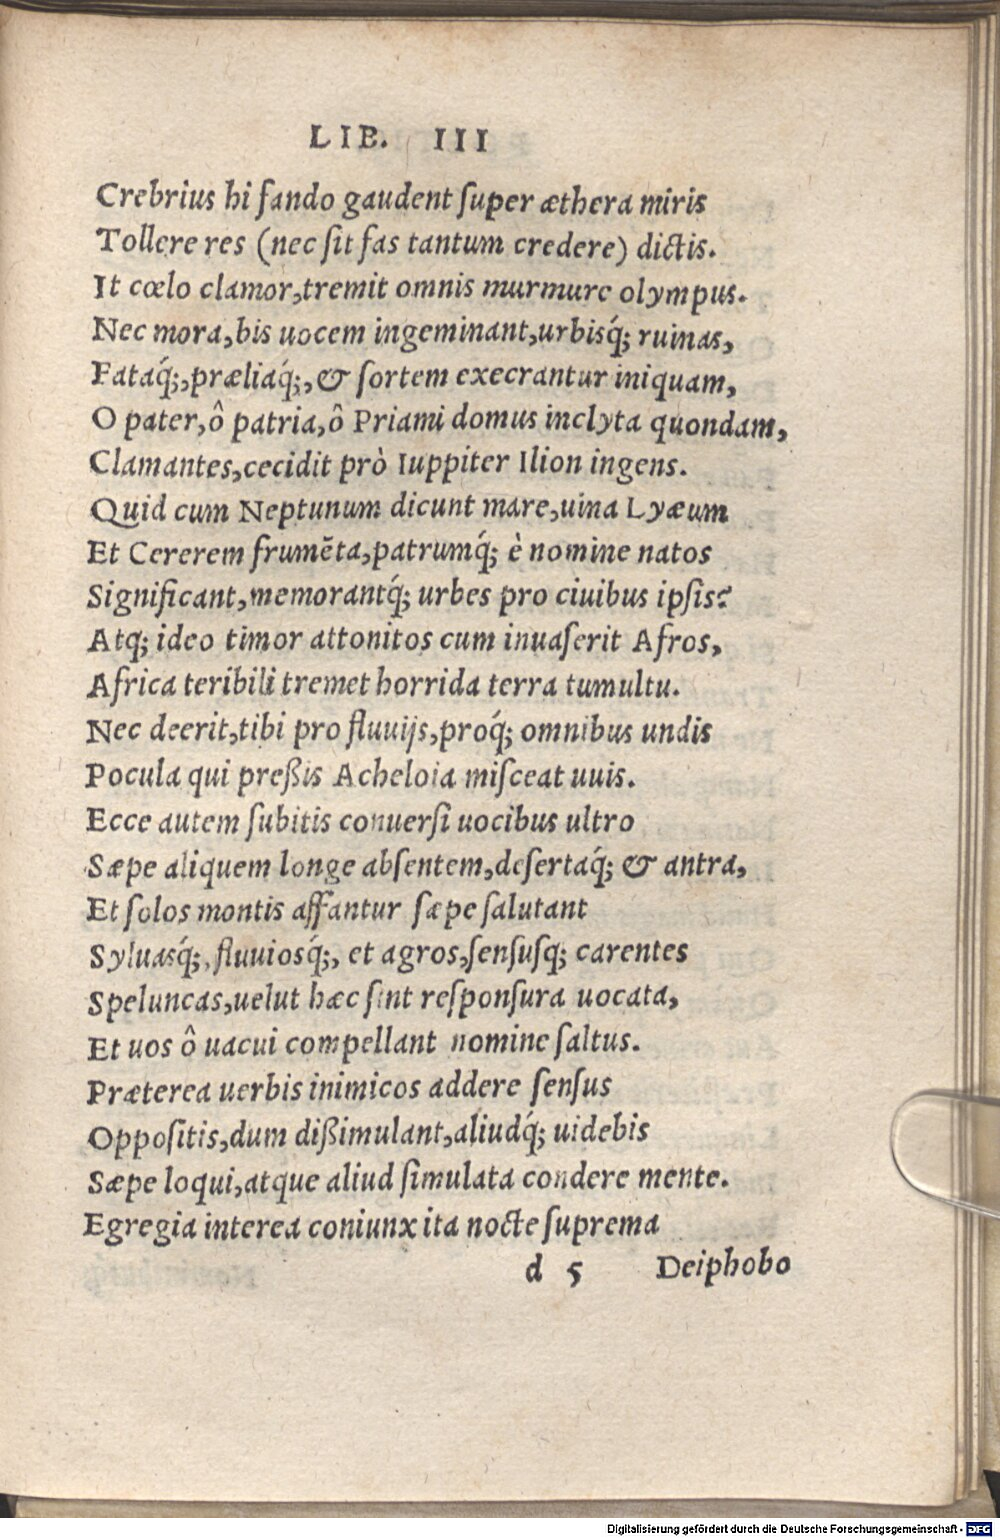 LIB. III
Crebrius hi fando gaudent ſuper æthera miris
Tollere res (nec ſit fas tantum credere) dictis.
It cœlo clamor,tremit omnis murmure olympus.
Nec mora,bis uocem ingeminant,urbisq́; ruinas,
Fataq́;,præliaq́;,& ſortem execrantur iniquam,
O pater,ô patria,ô Priami domus inclyta quondam,
Clamantes,cecidit prò Iuppiter Ilion ingens.
Quid cum Neptunum dicunt mare,uina Lyæum
Et Cererem frumēta,patrumq́; è nomine natos
Significant,memorantq́; urbes pro ciuibus ipſis?
Atq; ideo timor attonitos cum inuaſerit Afros,
Africa teribili tremet horrida terra tumultu.
Nec deerit,tibi pro fluuijs,proq́; omnibus undis
Pocula qui preßis Acheloia miſceat uuis.
Ecce autem ſubitis conuerſi uocibus ultro
Sæpe aliquem longe abſentem,deſertaq́; & antra,
Et ſolos montis affantur ſæpe ſalutant
Syluasq́;,fluuiosq́;, et agros,ſenſusq; carentes
Speluncas,uelut hæc ſint reſponſura uocata,
Et uos ô uacui compellant nomine ſaltus.
Præterea uerbis inimicos addere ſenſus
Oppoſitis,dum dißimulant,aliudq́; uidebis
Sæpe loqui,atque aliud ſimulata condere mente.
Egregia interea coniunx ita nocte ſuprema
d 5 Deiphobo
Digitalisierung gefördert durch die Deutsche Forschungsgemeinschaft - DFG